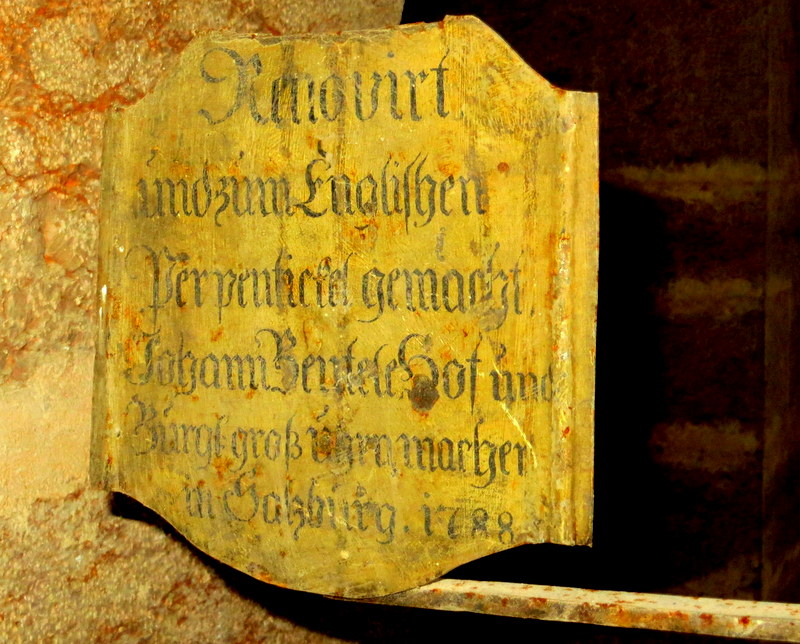 Renovirt
und zum Englishen
Perpentickel gemacht,
Johann Beutele Hof und
Bürgl groß uhrn macher
in Salzburg. 1788